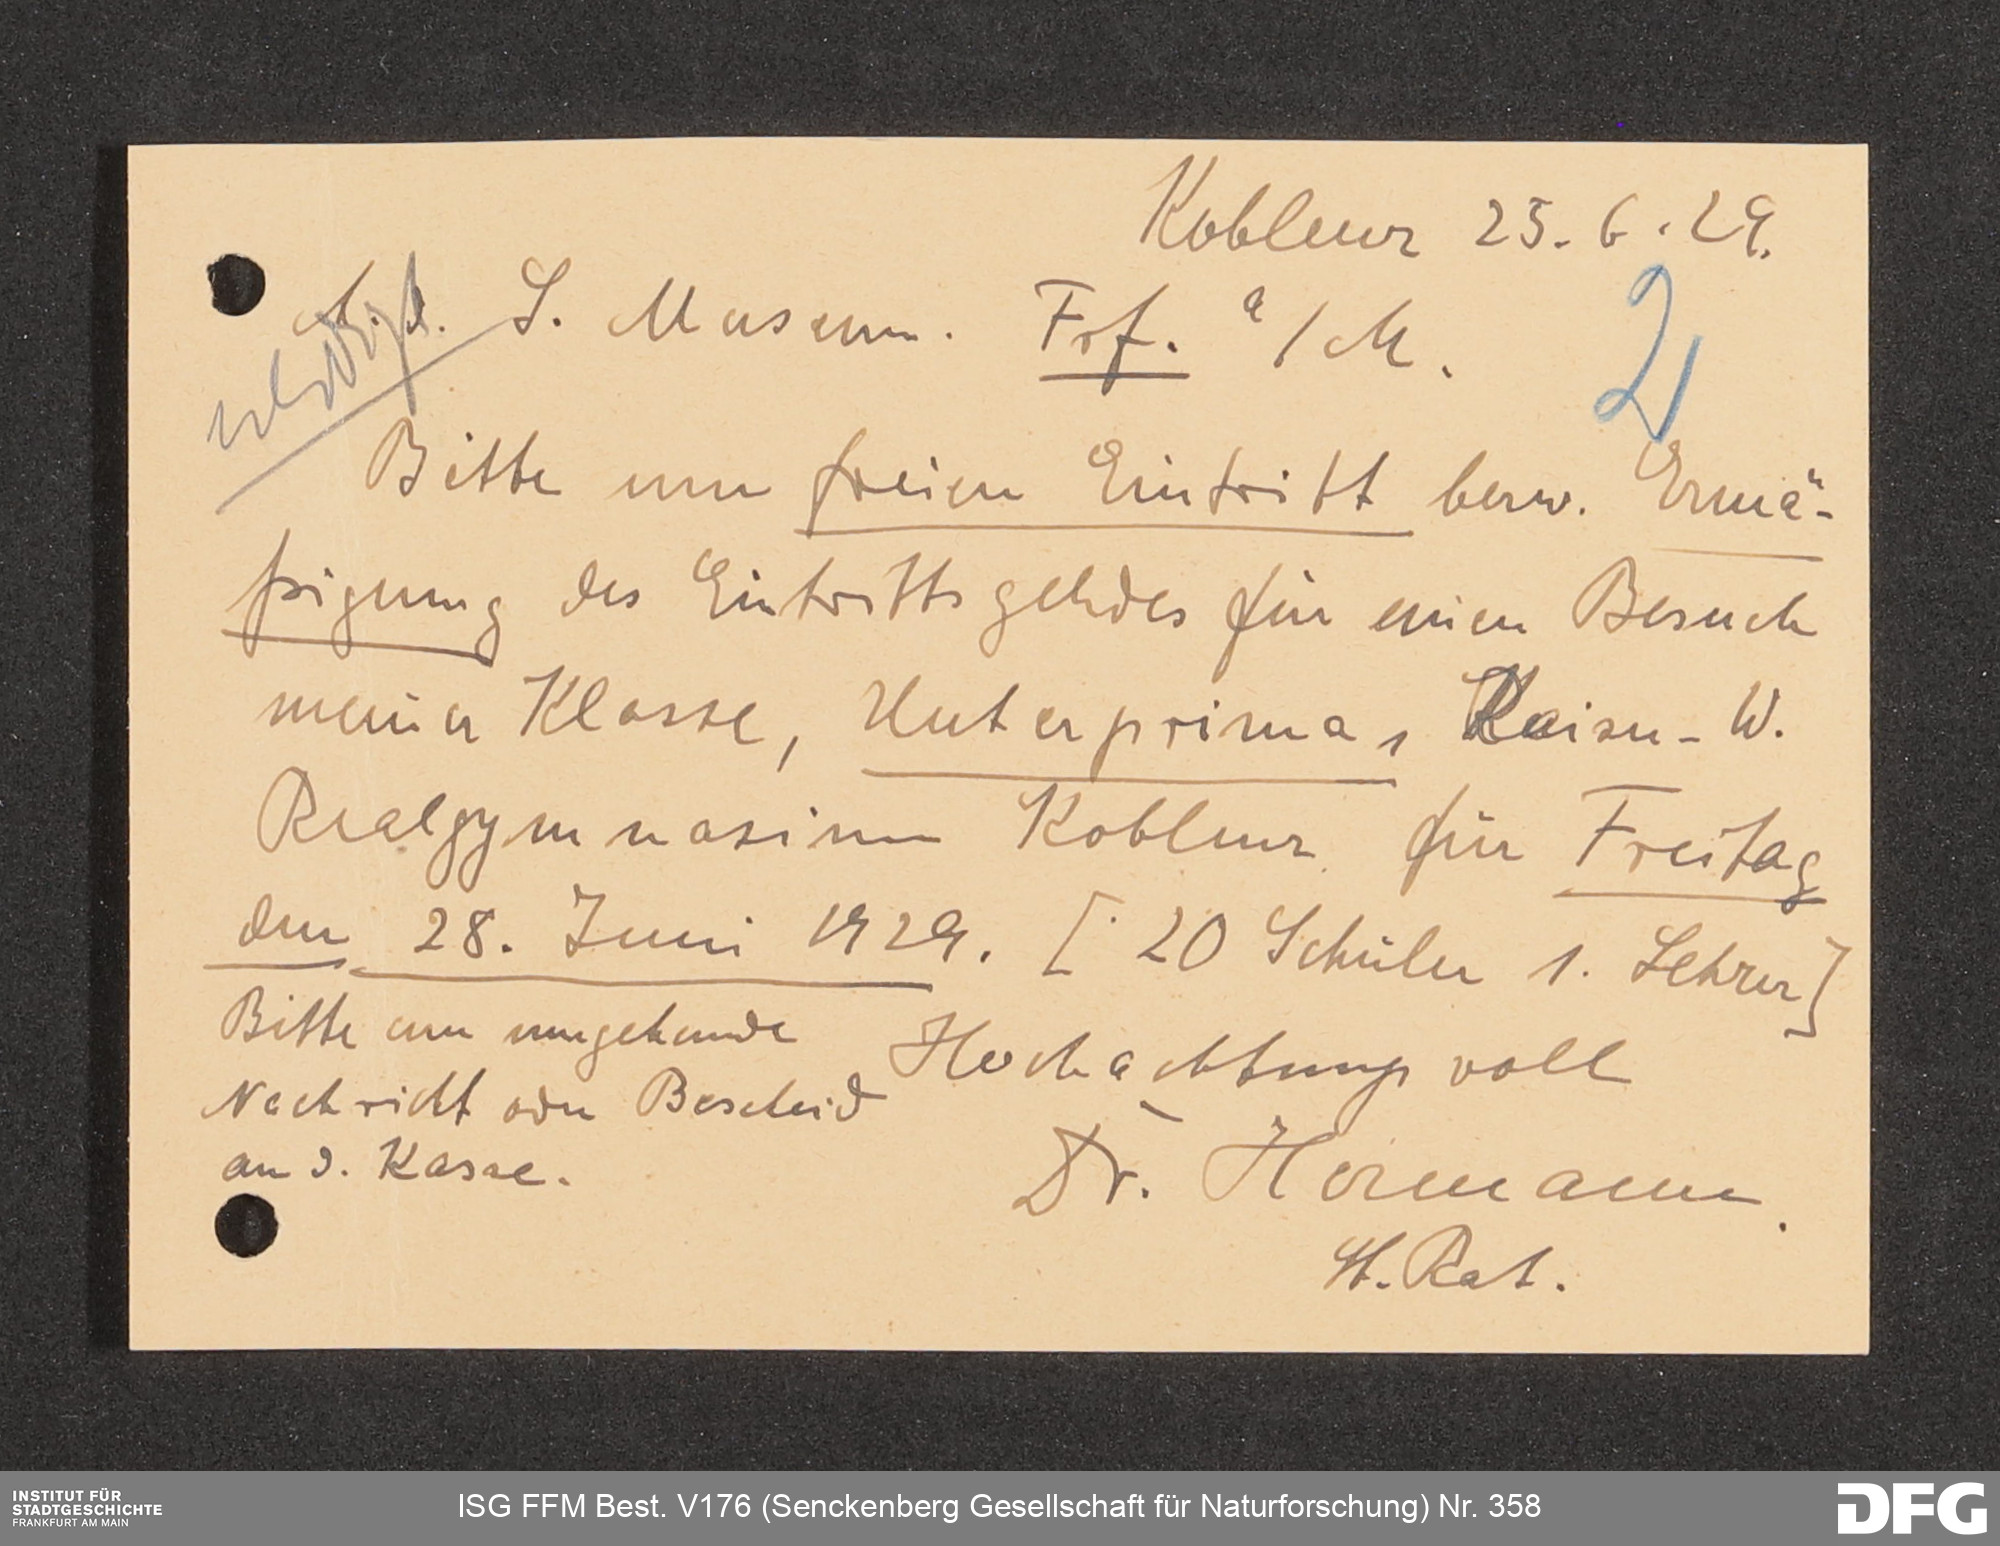 Koblenz 25. 6. 29.
A. d. S. Museum. Frf. a/M.
erledigt
2
Bitte um freien Eintritt bezw. Ermä-
ßigung des Eintrittsgeldes für einen Besuch
meiner Klasse, Unterprima, Kaiser-W.
Realgymnasium Koblenz für Freitag
den 28. Juni 1929. [20 Schüler 1. Lehrer]
Bitte um umgehende
Nachricht oder Bescheid
an d. Kasse.
Hochachtungsvoll
Dr. Hermann.
St. Rat.
INSTITUT FÜR
STADTGESCHICHTE
FRANKFURT AM MAIN
ISG FFM Best. V176 (Senckenberg Gesellschaft für Naturforschung) Nr. 358
DFG